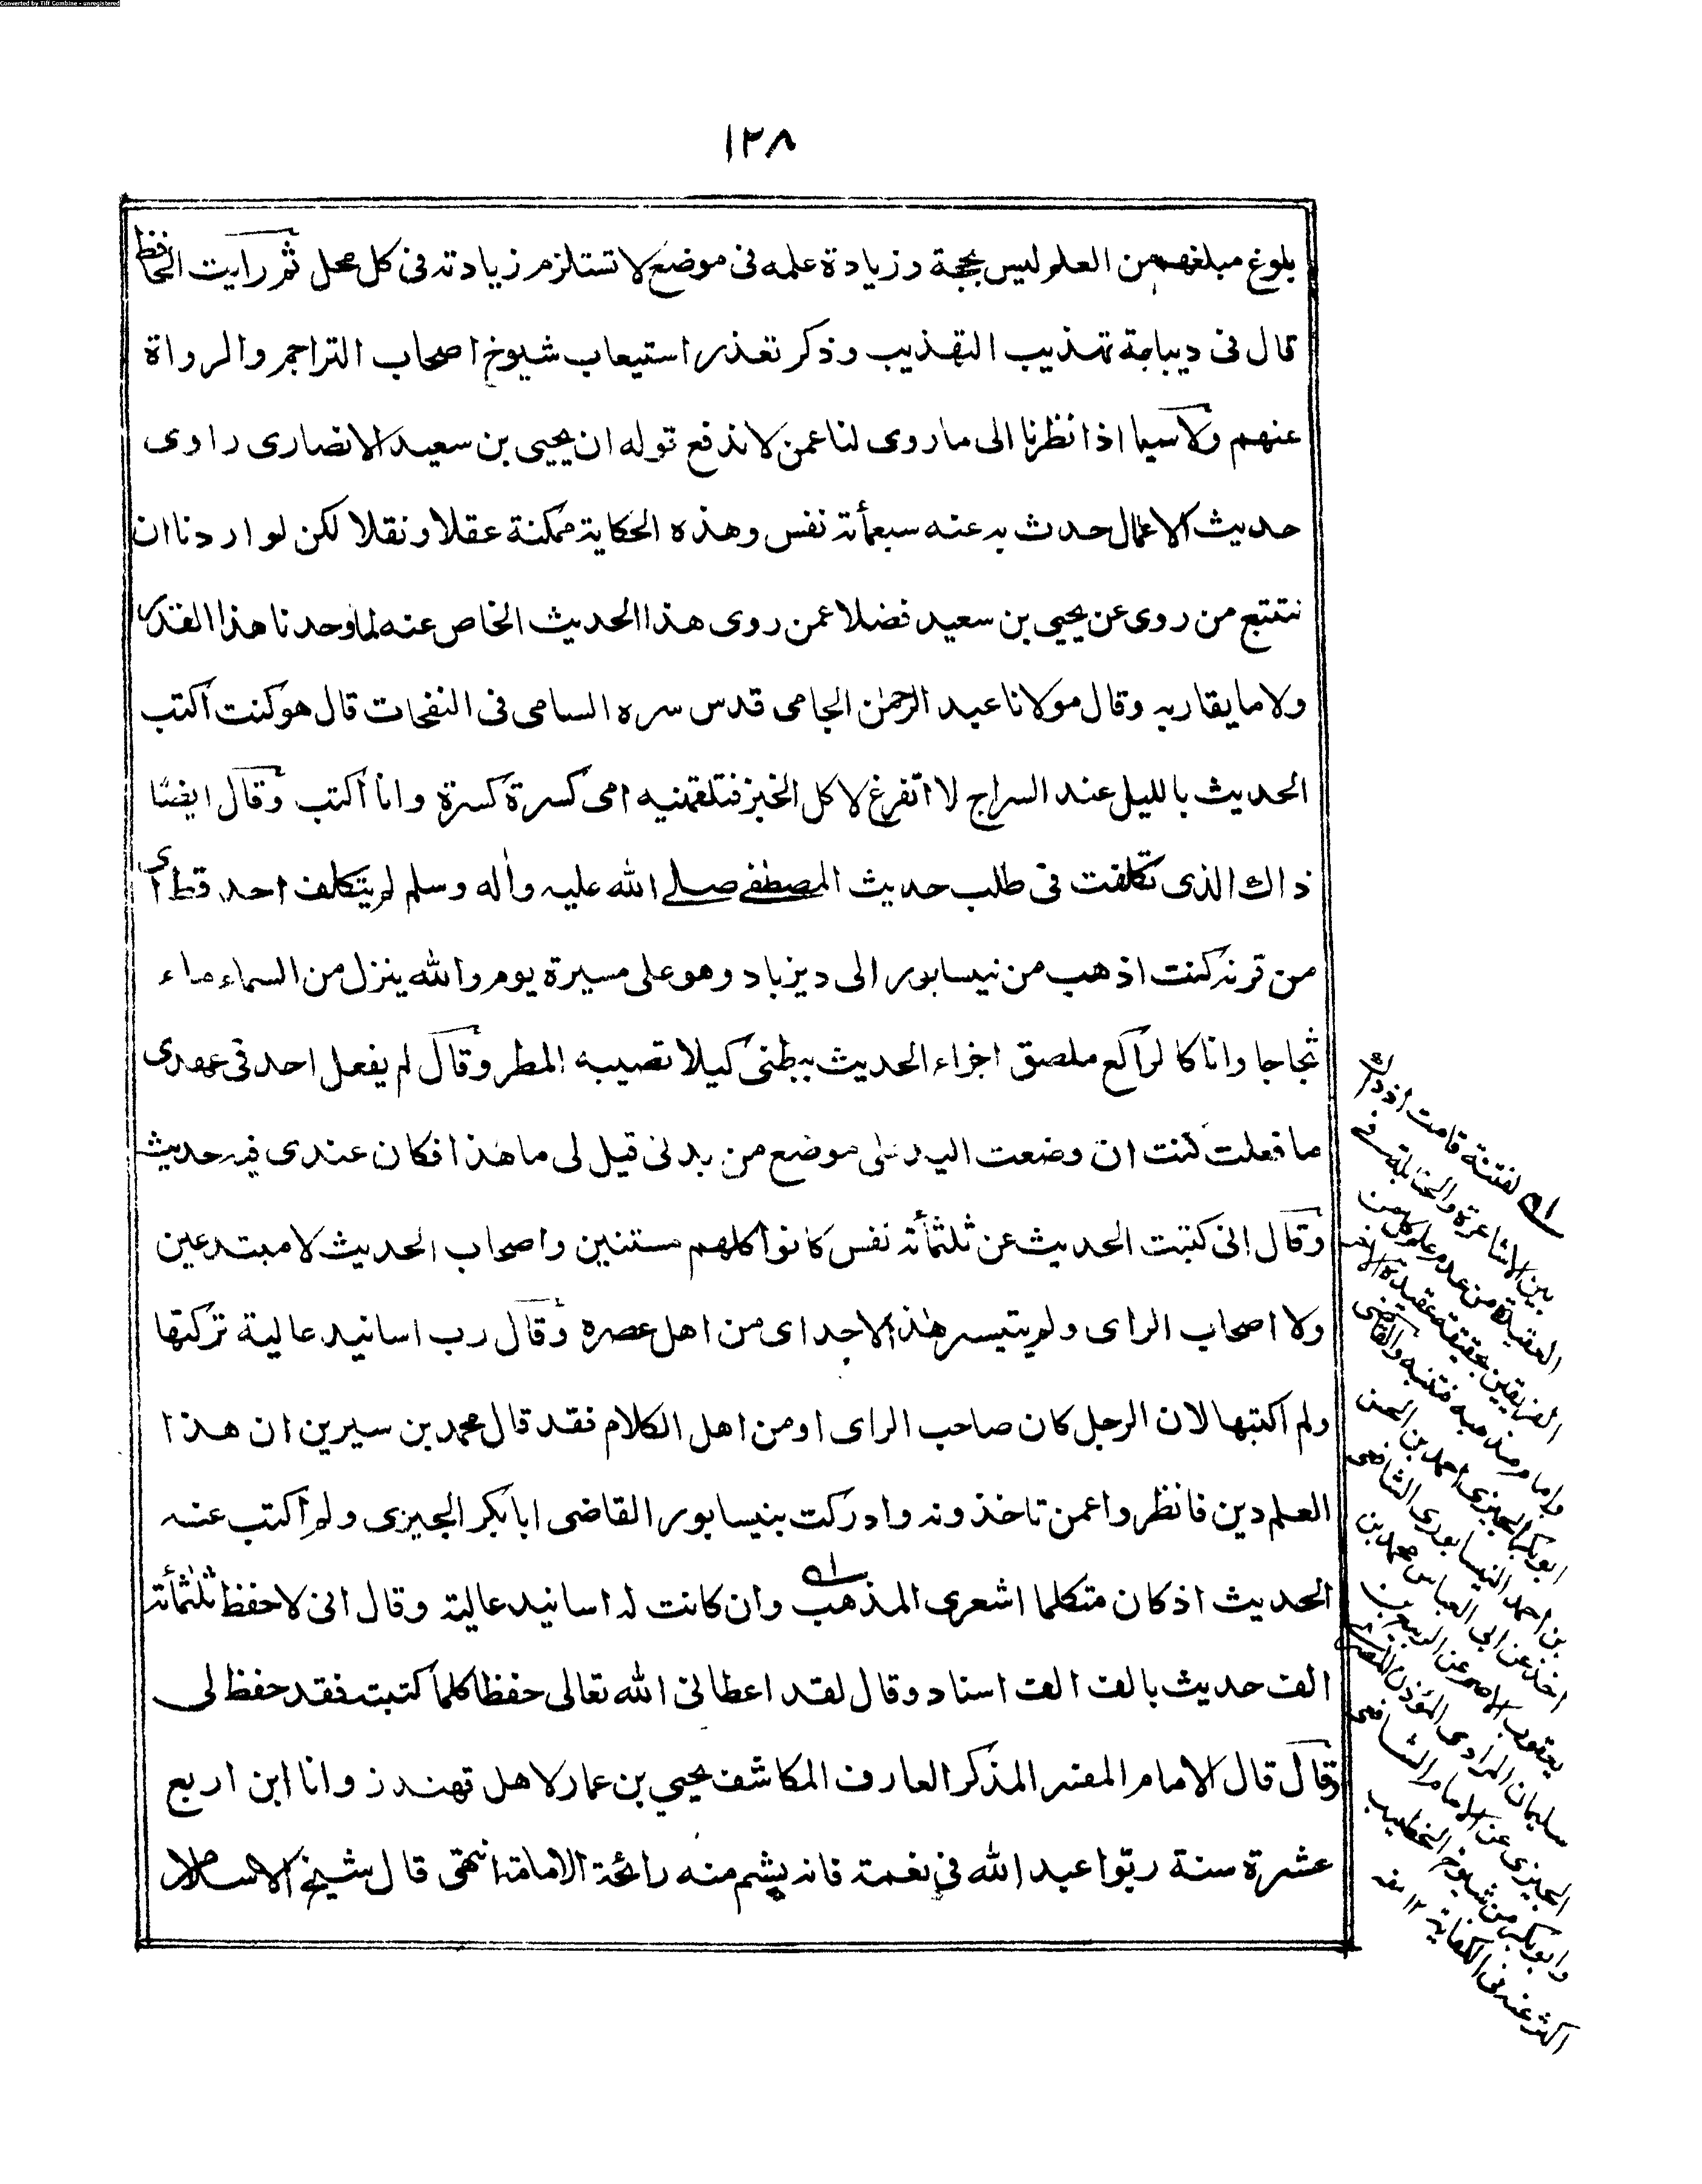 Converted by Tiff Combine - unregistered
١٢٨
بلوغ مبلغهم من العلم ليس بحجة وزيادة علمه فى موضع لا تستلزم زيادته فى كل محل ثم رايت الحافظ
قال فى ديباجة تهذيب التهذيب وذكر تعذر استيعاب شيوخ اصحاب التراجم والرواة
عنهم ولا سيما اذا نظرنا الى ما روى لنا عمن لا ندفع قوله ان يحيى بن سعيد الانصارى راوى
حديث الاعمال حدث به عنه سبعمأته نفس وهذه الحكاية ممكنة عقلا ونقلا لكن لو اردنا ان
نتتبع من روى عن يحيى بن سعيد فضلا عمن روى هذا الحديث الخاص عنه لما وجدنا هذا القدر
ولا ما يقاربه وقال مولانا عبد الرحمٰن الجامى قدس سره السامى فى النفحات قال هو كنت اكتب
الحديث بالليل عند السراج لا اتفرغ لاكل الخبز فتلقمنيه امى كسرة كسرة وانا اكتب وقال ايضًا
ذاك الذى تكلفت فى طلب حديث المصطفے صلے الله عليه وأله وسلم لم يتكلف احد قط اى
من قرنه كنت اذهب من نيسابور الى ديزباد وهو على مسيرة يوم والله ينزل من السماء ماء
ثجاجا وانا كالراكع ملصق اجزاء الحديث ببطنى كيلا تصيبه المطر وقال لم يفعل احد فى عهدى
ما فعلت كنت ان وضعت اليد على موضع من بدنى قيل لى ما هذا فكان عندى فيه حديث
وقال انى كتبت الحديث عن ثلثمأته نفس كانوا كلهم مستنين واصحاب الحديث لا مبتدعين
ولا اصحاب الراى ولم يتيسر هٰذا لاحد اى من اهل عصره وقال رب اسانيد عالية تركتها
ولم اكتبها لان الرجل كان صاحب الراى او من اهل الكلام فقد قال محمد بن سيرين ان هذا
العلم دين فانظروا عمن تاخذونه وادركت بنيسابور القاضى ابا بكر الحيرى ولم اكتب عنه
الحديث اذ كان متكلما اشعرى المذهب وان كانت له اسانيد عالية وقال انى لاحفظ ثلثمأته
الف حديث بالف الف اسناد وقال لقد اعطانى الله تعالى حفظا كلما كتبت فقد حفظ لى
وقال قال الامام المفسر المذكر العارف المكاشف يحيي بن عمار لاهل تهندز وانا ابن اربع
عشرة سنة ربّوا عبد الله فى نغمة فانه يشم منه رائحة الامامة انتهى قال شيخ الاسلام
لفتنة قامت اذ ذاك
بين الاشاعرة والحنابلة فى
العقيدة من عدم علم كل من
الفريقين بحقيقة عقيدة الاخر
وامام مذهبه فتنبه والقاضى
ابو بكر الحيرى احمد بن الحسن
بن احمد النيسابورى الشافعى
اخذ عن ابى العباس محمد بن
يعقوب الاصم عن الربيع بن
سليمان المرادى المؤذن المصرى
الجيزى عن الامام الشافعى
وابو بكر من شيوخ الخطيب
اكثر عنه فى الكفاية ١٢ منه